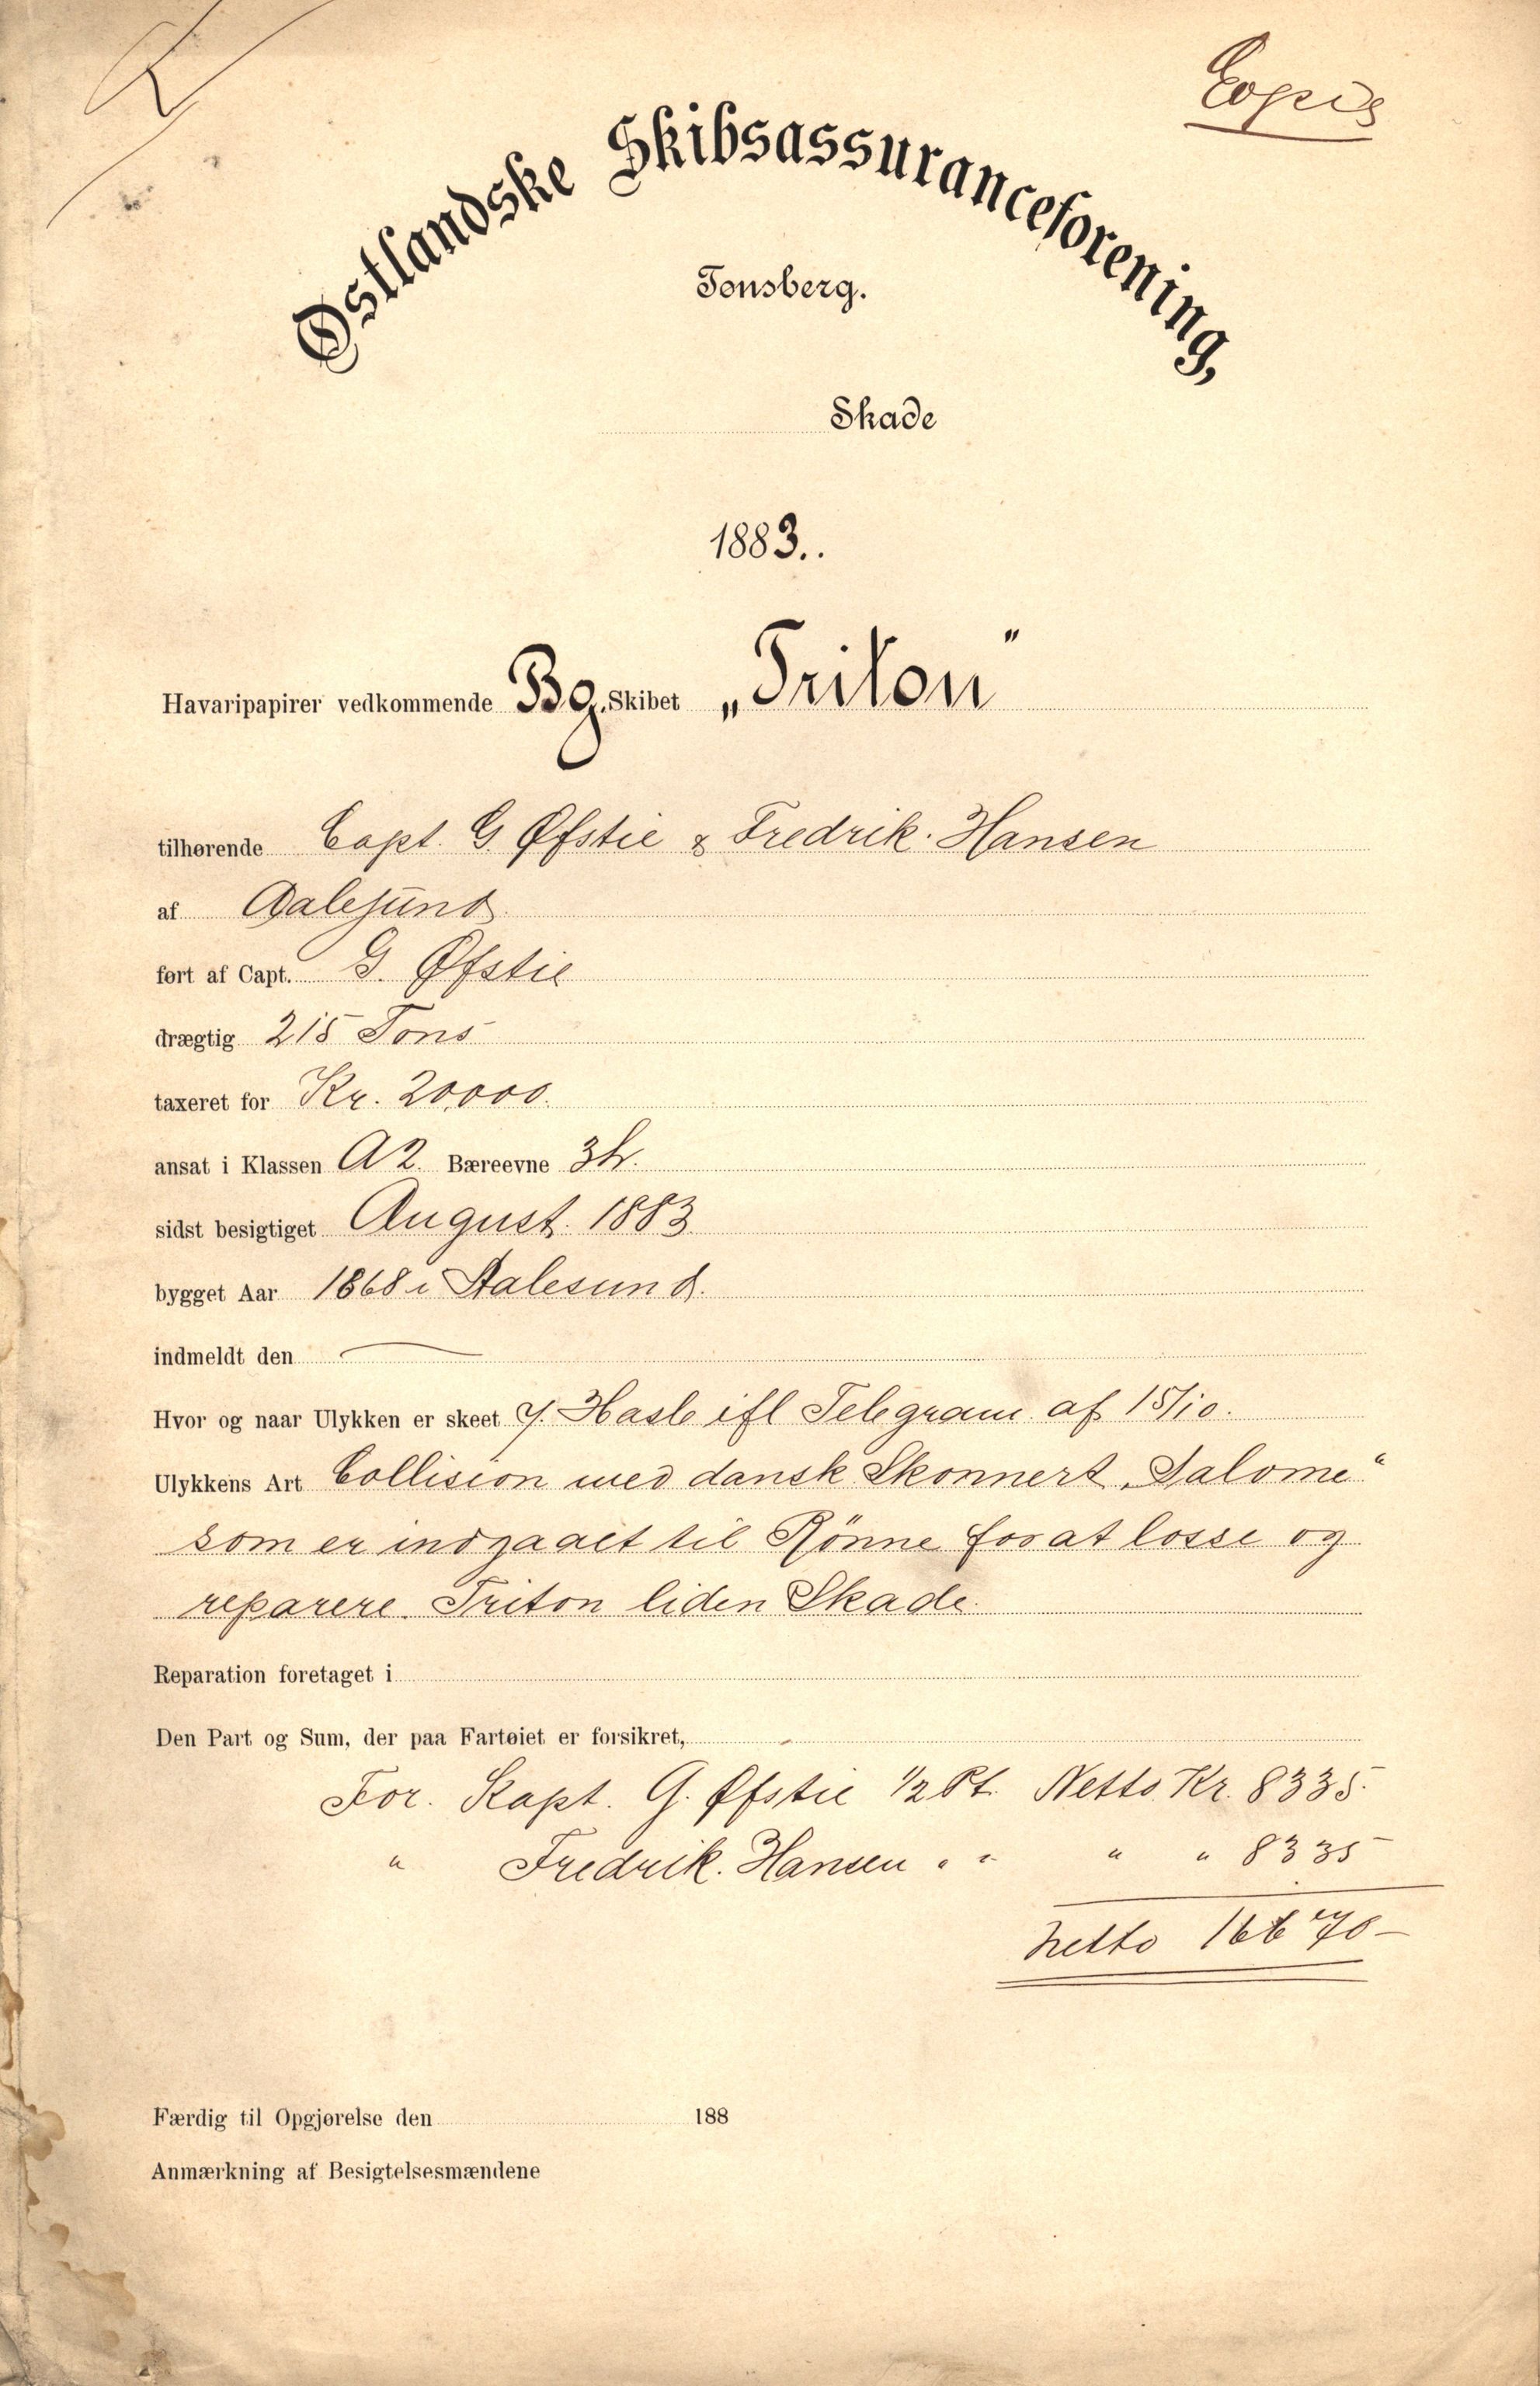 Copie
Østlandske Skibsassuranceforening,
Tønsberg.
Skade
1883..
Havaripapirer vedkommende Bg. Skibet „Triton"
tilhørende Capt. G. Øfstie & Fredrik. Hansen
af Aalesund
ført af Capt. G. Øfstie
drægtig 215 Tons
taxeret for Kr. 20,000.
ansat i Klassen A2. Bæreevne
sidst besigtiget August. 1883.
bygget Aar 1868 i Aalesund.
indmeldt den —
Hvor og naar Ulykken er skeet v. Hasle ifl Telegram af 15/10.
Ulykkens Art Collision med dansk Skonnert „Salome"
som er indgaaet til Rönne for at losse og
reparere. Triton liden Skade.
Reparation foretaget i
Den Part og Sum, der paa Fartøiet er forsikret,
For. Kapt. G. Øfstie 1/2 Pt. Netto Kr. 8335.
" Fredrik. Hansen " " " " 8335
netto 16670 —
Færdig til Opgjørelse den 188
Anmærkning af Besigtelsesmændene